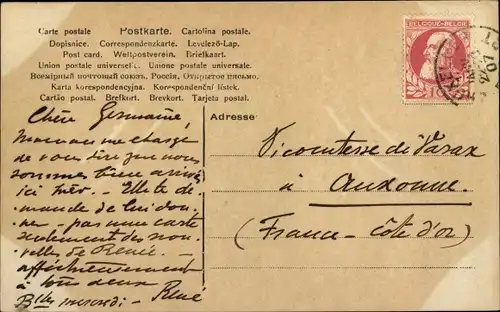 Carte postale Postkarte. Cartolina postale.
Dopisnice. Correspondenzkarte. Levelező-Lap.
Post card. Weltpostverein. Briefkaart.
Union postale universelle. Unione postale universale.
Всемірный почтовый союзъ. Россія. Открытое письмо.
Karta korespondencyjna. Korespondenční lístek.
Cartão postal. Brefkort. Brevkort. Tarjeta postal.
BELGIQUE-BELGIË
10 10
Chère Germaine,
Maman me charge
de vous dire que nous
sommes bien arrivés
ici hier. Elle te
demande de lui don
ner pas une carte
seulement des nou
velles de Renée.
affectueusement
à tous deux
Blles mercredi - René
Adresse
Vicomtesse de Varax
à Auxonne
(France - Côte d'or)